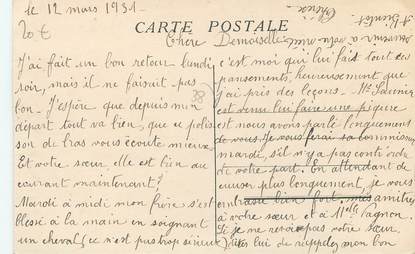 le 12 mars 1931
CARTE POSTALE
Chère Demoiselle
J'ai fait un bon retour lundi
soir, mais il ne faisait pas
bon. J'espère que depuis mon
départ tout va bien, que ce polis
son de bras vous écoute mieux.
Et votre sœur elle est bien au
courant maintenant?
Mardi à midi mon frère s'est
blessé à la main en soignant
un cheval (ce n'est pas trop sérieux)
c'est moi qui lui fait tout des
pansements, heureusement que
j'ai pris des leçons. Mr
est venu lui faire une piqure
et nous avons parlé longuement
de vous. Je vous ferai sa commission
mardi, s'il n'y a pas contre ordre
de votre part. En attendant de
causer plus longuement, je vous
embrasse bien fort, mes amitiés
à votre sœur et à Mlle Pagnon.
Si je ne revois pas votre sœur
dites lui de rappeler mon bon
souvenir à votre
A Bientôt